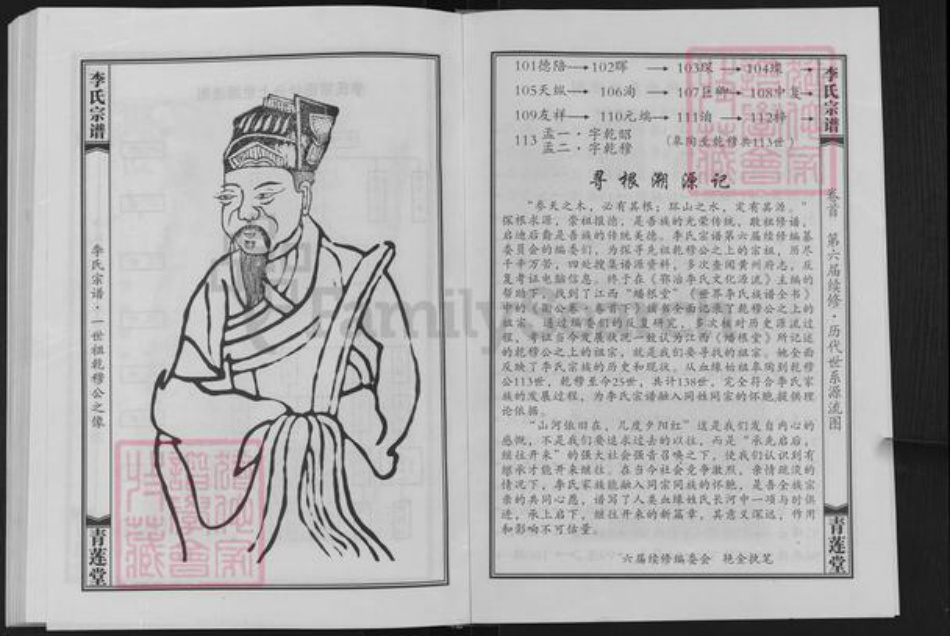 李氏宗谱
李氏宗谱·一世祖乾穆公之像
青莲堂
101德陪→102晖→103琛→104璨→
105天纵→106洵→107巨卿→108中复→
109友祥→110元瑞→111泊→112梓→
113 孟一·字乾昭
孟二·字乾穆
(皋陶至乾穆共113世)
寻根溯源记
“参天之木，必有其根；环山之水，定有其源。”
探根求源，崇祖报德，是吾族的光荣传统，敬祖修谱，
启迪后裔是吾族的传统美德。李氏宗谱第六届续修编纂
委员会的编委们，为探寻先祖乾穆公之上的宗祖，历尽
千辛万苦，四处搜集谱源资料，多次查阅黄州府志，反
复考证电脑信息。终于在《鄂冶李氏文化源流》主编的
帮助下，找到了江西“蟠根堂”《世界李氏族谱全书》
中的《衡公卷·卷首下》谱书全面记录了乾穆公之上的
祖宗。通过编委们的反复研究，多次核对历史源流过
程，考证当今发展状况一致认为江西《蟠根堂》所记述
的乾穆公之上的祖宗，就是我们要寻找的祖宗。她全面
反映了李氏宗族的历史和现状。从血缘始祖皋陶到乾穆
公113世，乾穆至今25世，共计138世，完全符合李氏家
族的发展过程，为李氏宗谱融入同姓同宗的怀抱提供理
论依据。
“山河依旧在，几度夕阳红”这是我们发自内心的
感慨，不是我们要追求过去的以往，而是“承先启后，
继往开来”的强大社会强音召唤之下，使我们认识到有
继承才能开来继往。在当今社会竞争激烈，亲情疏淡的
情况下，李氏家族能融入同宗同族的怀抱，是吾全族宗
亲的共同心愿，谱写了人类血缘姓氏长河中一项与时俱
进，承上启下，继往开来的新篇章，其意义深远，作用
和影响不可估量。
六届续修编委会 艳金执笔
李氏宗谱
卷首 第六届续修·历代世系源流图
青莲堂